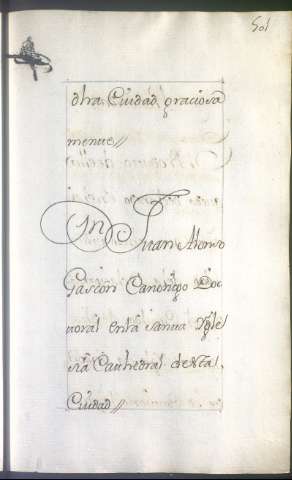 501
dhra Ciudad graciosa
mente//
Dn Juan Alonso
Gascon Canonigo Doc
toral en la santa Ygle
sia Cathedral de esta
Ciudad//